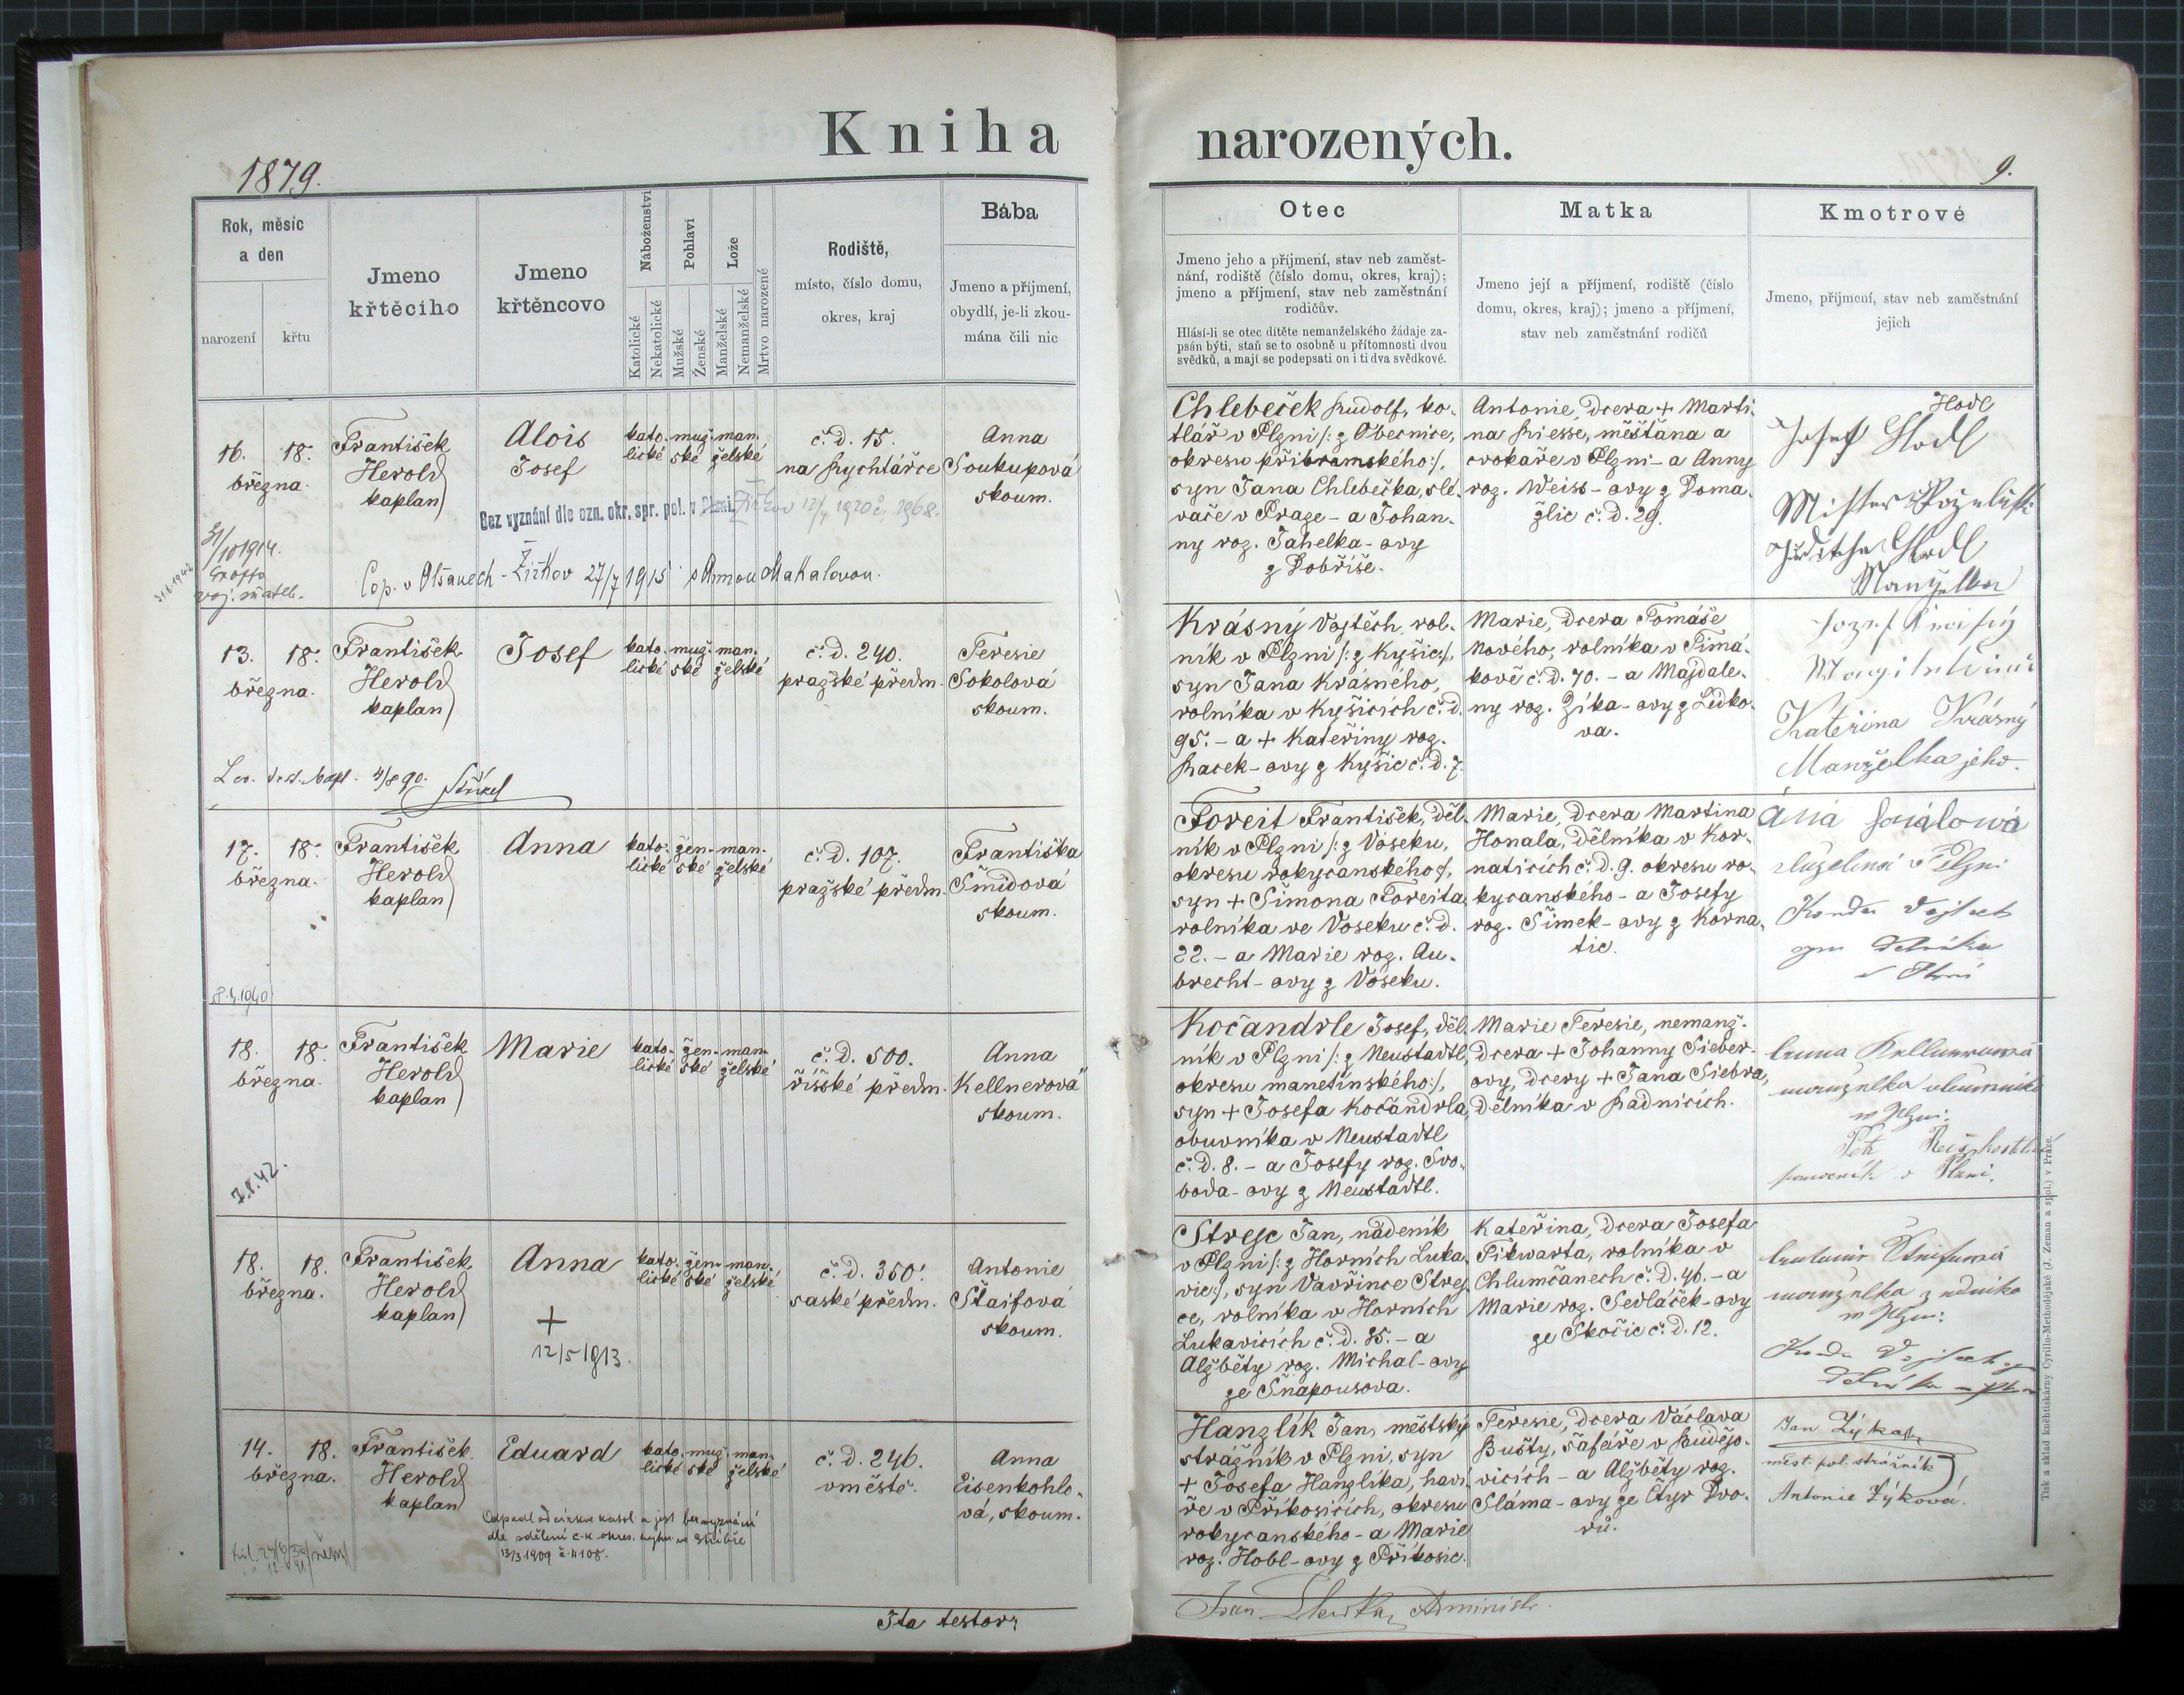 Kniha narozených.
1879.
9.
Rok, měsíc
a den
narození
křtu
Jmeno
křtěcího
Jmeno
křtěncovo
Náboženství
Katolické
Nekatolické
Pohlaví
Mužské
Ženské
Lože
Manželské
Nemanželské
Mrtvo narozené
Rodiště,
místo, číslo domu,
okres, kraj
Bába
Jmeno a příjmení,
obydlí, je-li zkou-
mána čili nic
Otec
Jmeno jeho a příjmení, stav neb zaměst-
nání, rodiště (číslo domu, okres, kraj);
jmeno a příjmení, stav neb zaměstnání
rodičův.
Hlásí-li se otec dítěte nemanželského žádaje za-
psán býti, staň se to osobně u přítomnosti dvou
svědků, a mají se podepsati on i ti dva svědkové.
Matka
Jmeno její a příjmení, rodiště (číslo
domu, okres, kraj); jmeno a příjmení,
stav neb zaměstnání rodičů
Kmotrové
Jmeno, příjmení, stav neb zaměstnání
jejich
16. 18.
března.
František
Herold
kaplan
Alois
Josef
kato-
lické
muž-
ské
man-
želské
č. d. 15.
na Rychtářce
Anna
Soukupová
skoum.
Bez vyznání dle ozn. okr. spr. pol. v Žižkov 12/1 1920 č. 1968.
31/10 1914.
Cop. v Olšanech - Žižkov 27/7 1915 s Annou Makalovou.
Chlebeček Rudolf, ko-
tlář v Plzni /: z Obecnice,
okresu příbramského :/,
syn Jana Chlebečka, slé-
vače v Praze - a Johan-
ny roz. Jahelka - ovy
z Dobříše.
Antonie, dcera + Marti-
na Riesse, měšťana a
cvokaře v Plzni - a Anny
roz. Weiss - ovy z Doma-
žlic č. d. 29.
Hodl
Josef Hodl
Juditha Hodl
Manželka
13. 18.
března.
František
Herold
kaplan
Josef
kato-
lické
muž-
ské
man-
želské
č. d. 240.
pražské předm.
Teresie
Sokolová
skoum.
4/8 90.
Krásný Vojtěch, rol-
ník v Plzni /: z Kyšic :/,
syn Jana Krásného,
rolníka v Kyšicích č. d.
95. - a + Kateřiny roz.
Racek - ovy z Kyšic č. d. 7.
Marie, dcera Tomáše
Nového, rolníka v Timá-
kově č. d. 70. - a Majdale-
ny roz. Zíka - ovy z Lidko-
va.
Kateřina Krásný
Manželka jeho.
17. 18.
března.
František
Herold
kaplan
Anna
kato-
lické
žen-
ské
man-
želské
č. d. 107.
pražské předm.
Františka
Šmídová
skoum.
8.4.1940
Foreit František, děl-
ník v Plzni /: z Voseku,
okresu rokycanského :/,
syn + Šimona Foreita,
rolníka ve Voseku č. d.
22. - a Marie roz. Au-
brecht - ovy z Voseku.
Marie, dcera Martina
Honala, dělníka v Kor-
naticích č. d. 9. okresu ro-
kycanského - a Josefy
roz. Šimek - ovy z Korna-
tic.
18. 18.
března.
František
Herold
kaplan
Marie
kato-
lické
žen-
ské
man-
želské
č. d. 500.
říšské předm.
Anna
Kellnerová
skoum.
Kočandrle Josef, děl-
ník v Plzni /: z Neustadtl,
okresu manetínského :/,
syn + Josefa Kočandrla,
obuvníka v Neustadtl
č. d. 8. - a Josefy roz. Svo-
boda - ovy z Neustadtl.
Marie Teresie, nemanž.
dcera + Johanny Sieber-
ovy, dcery + Jana Siebra,
dělníka v Radnicích.
18. 18.
března.
František
Herold
kaplan
Anna
+
12/5 1913.
kato-
lické
žen-
ské
man-
želské
č. d. 350.
saské předm.
Antonie
Štaifová
skoum.
Strejc Jan, nádeník
v Plzni /: z Horních Luka-
vic :/, syn Vavřince Strej-
ce, rolníka v Horních
Lukavicích č. d. 35. - a
Alžběty roz. Michal - ovy
ze Šnapousova.
Kateřina, dcera Josefa
Tikwarta, rolníka v
Chlumčanech č. d. 46. - a
Marie roz. Sedláček - ovy
ze Skočic č. d. 12.
14. 18.
března.
František
Herold
kaplan
Eduard
kato-
lické
muž-
ské
man-
želské
č. d. 246.
v městě.
Anna
Eisenkohlo-
vá, skoum.
Odpadl od církve katol. a jest bez vyznání
dle sdělení c. k. okres. hejtm. ve Stříbře
13/3 1909 č. 4108.
Hanzlík Jan, městský
strážník v Plzni, syn
+ Josefa Hanzlíka, haví-
ře v Příkosicích, okresu
rokycanského - a Marie
roz. Hobl - ovy z Příkosic.
Teresie, dcera Václava
Bušty, šafáře v Budějo-
vicích - a Alžběty roz.
Sláma - ovy ze Čtyř Dvo-
rů.
Jan Zýka
měst. pol. strážník
Antonie Zýková.
Ita testor:
Administr.
Tisk a sklad knihtiskárny Cyrillo-Methodějské (J. Zeman a spol.) v Praze.